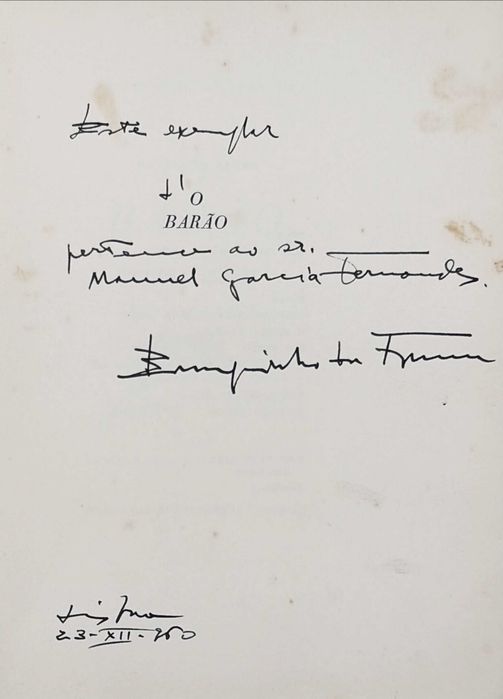 Este exemplar
d' O
BARÃO
pertence ao sr.
Manuel Garcia Fernandes.
Branquinho da Fonseca
Lisboa
23-XII-960